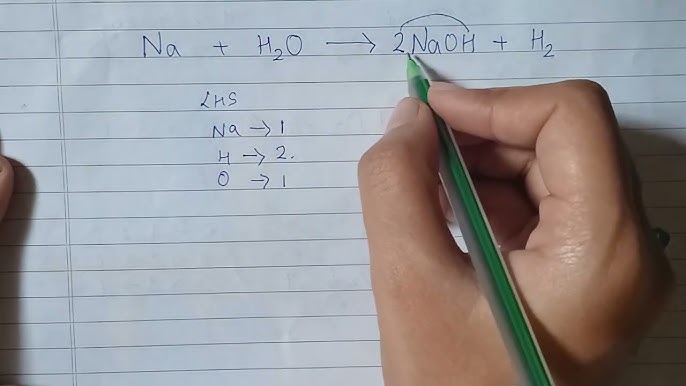 Na + H₂O → 2NaOH + H₂
LHS
Na → 1
H → 2.
O → 1